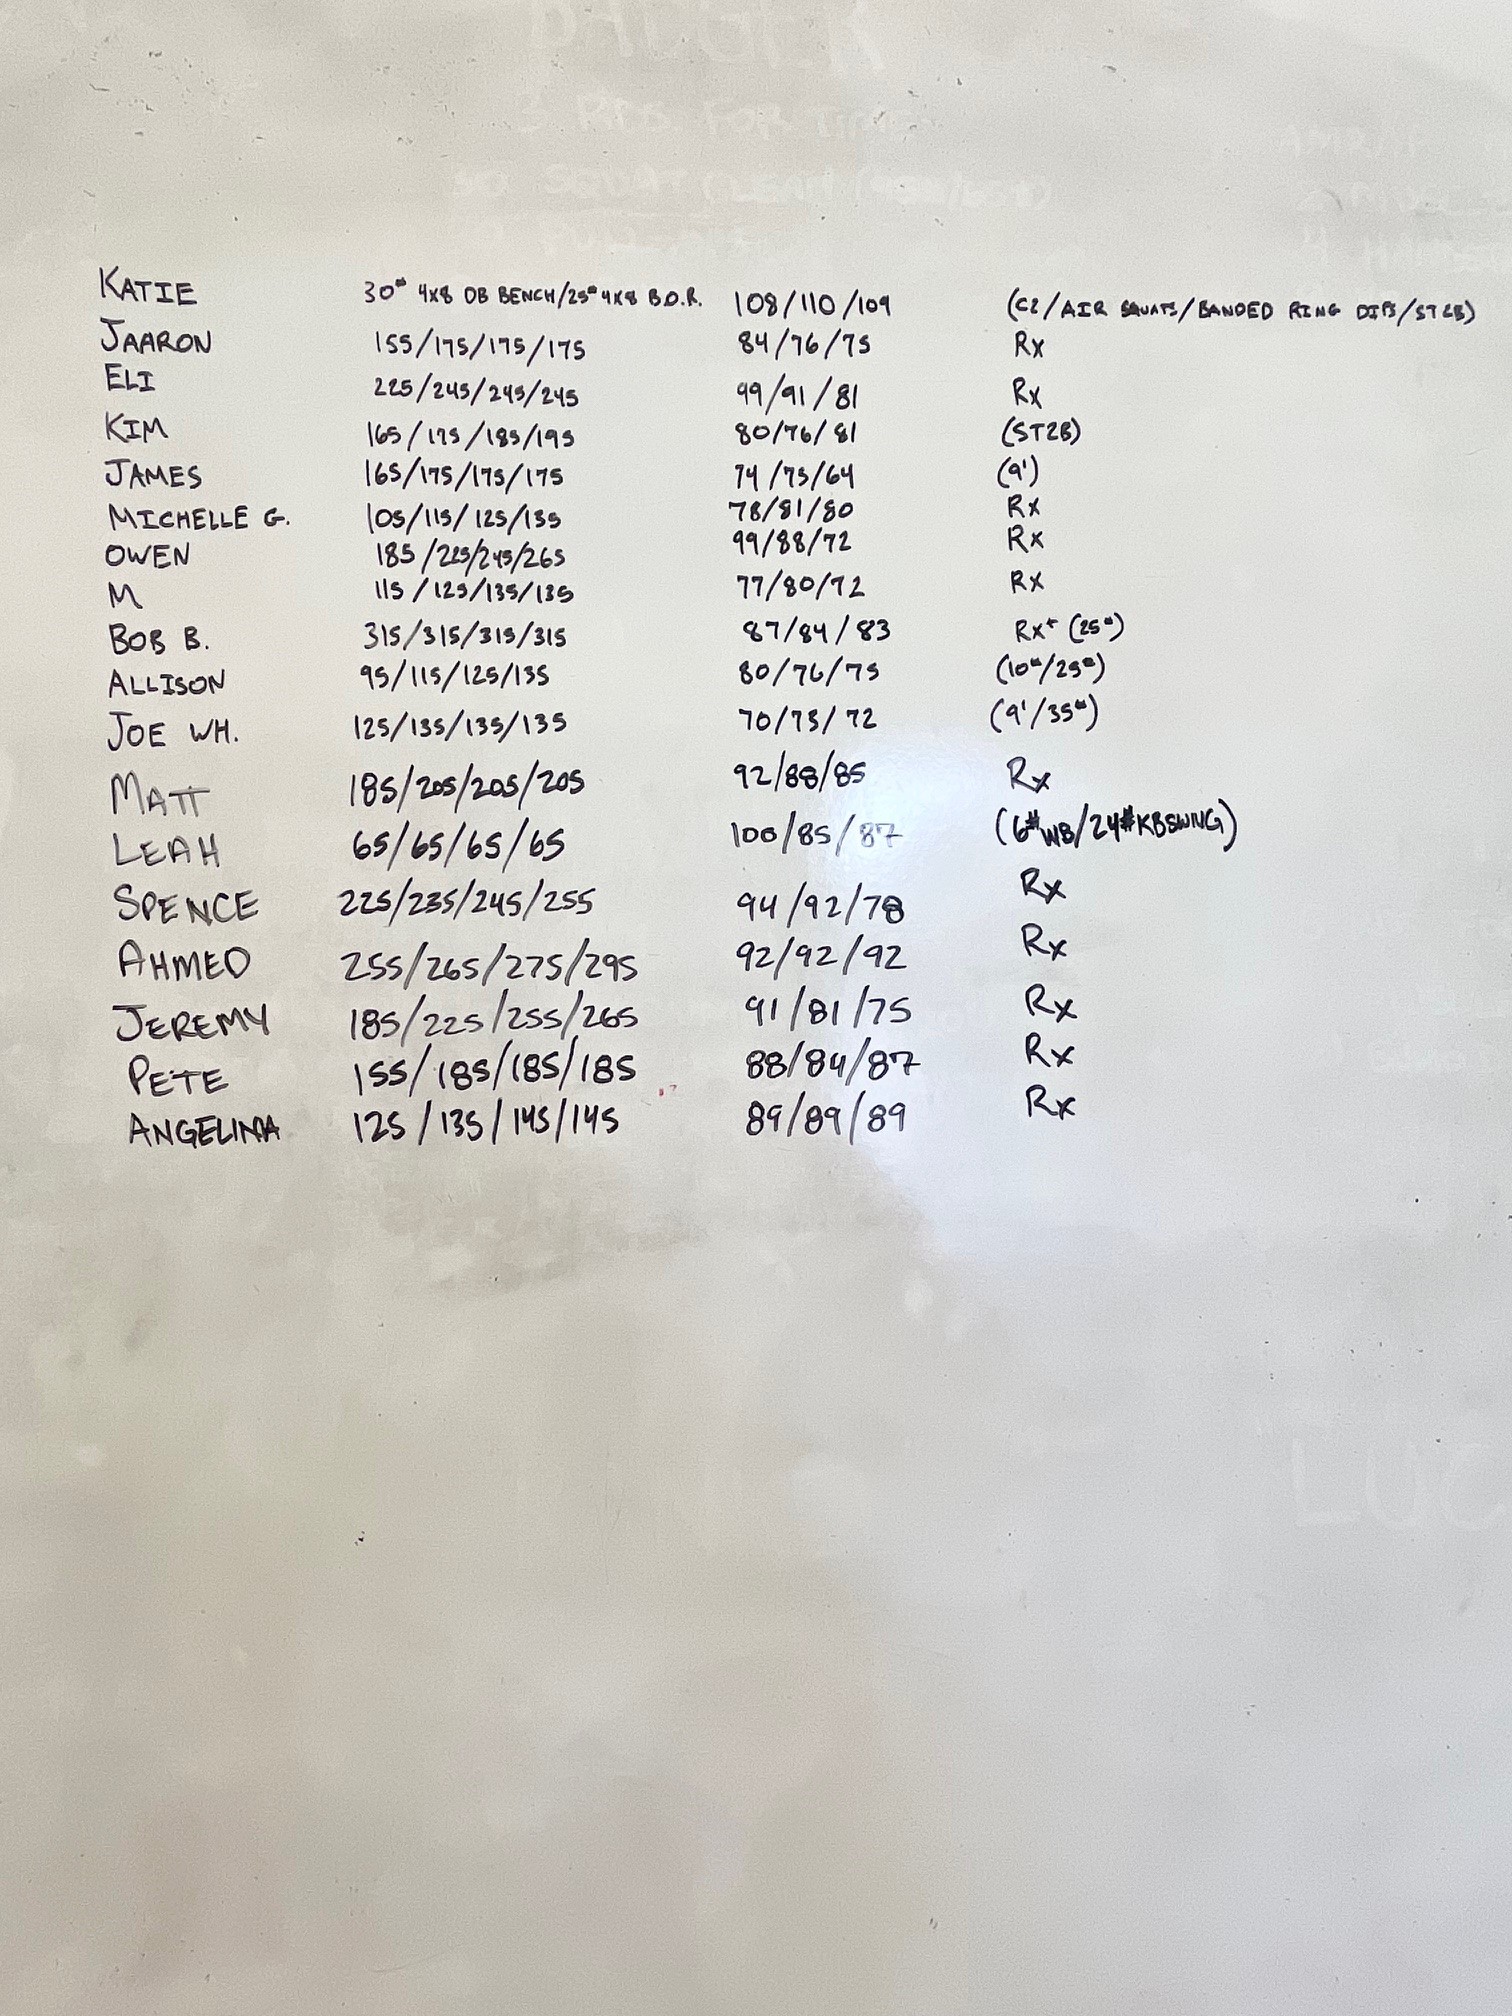 3 RDS FOR TIME
KATIE 30# 4x8 DB BENCH/25# 4x8 B.O.R. 108/110/109 (C2/AIR SQUATS/BANDED RING DIPS/ST2B)
JAARON 155/175/175/175 84/76/75 Rx
ELI 225/245/245/245 99/91/81 Rx
KIM 165/175/185/195 80/76/81 (ST2B)
JAMES 165/175/175/175 74/75/64 (9')
MICHELLE G. 105/115/125/135 78/81/80 Rx
OWEN 185/225/245/265 99/88/72 Rx
M 115/125/135/135 77/80/72 Rx
BOB B. 315/315/315/315 87/84/83 Rx+ (25#)
ALLISON 95/115/125/135 80/76/75 (10#/25#)
JOE WH. 125/135/135/135 70/75/72 (9'/35#)
MATT 185/205/205/205 92/88/85 Rx
LEAH 65/65/65/65 100/85/87 (6#WB/24#KBSWING)
SPENCE 225/235/245/255 94/92/78 Rx
AHMED 255/265/275/295 92/92/92 Rx
JEREMY 185/225/255/265 91/81/75 Rx
PETE 155/185/185/185 88/84/87 Rx
ANGELINA 125/135/145/145 89/89/89 Rx